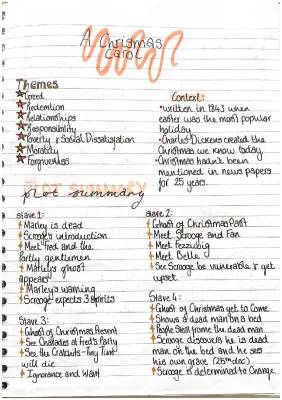 A Chrismas
Carol
Themes
Greed
Redemtion
Relationships
Responsibility
Poverty & Social Dissatisfation
Morality
Forgivness
Context:
•written in 1843 when
easter was the most popular
holiday
•Charles Dickenes created the
Christmas we know today.
•Christmas hadn't been
mentioned in news papers
for 25 years.
plot summary
Stave 1:
Marley is dead
Scrooge's introduction
Meet Fred and the
Portly gentlemen
Marley's ghost
appears
Marley's warning
Scrooge expects 3 spirits
Stave 2:
Ghost of Christmas Past
Meet Scrooge and Fan
Meet Fezziwig
Meet Belle
See Scrooge be vunerable & get
upset
Stave 3:
Ghost of Christmas Present
See Charades at Fred's Party
See the Cratchits - Tiny Tim
will die
Ignorance and Want
Stave 4:
Ghost of Christmas yet to Come
Shows a dead man on a bed
People steal from the dead man
Scrooge discovers he is dead
man on the bed and he sees
his own grave (25th dec)
Scrooge is determined to Change